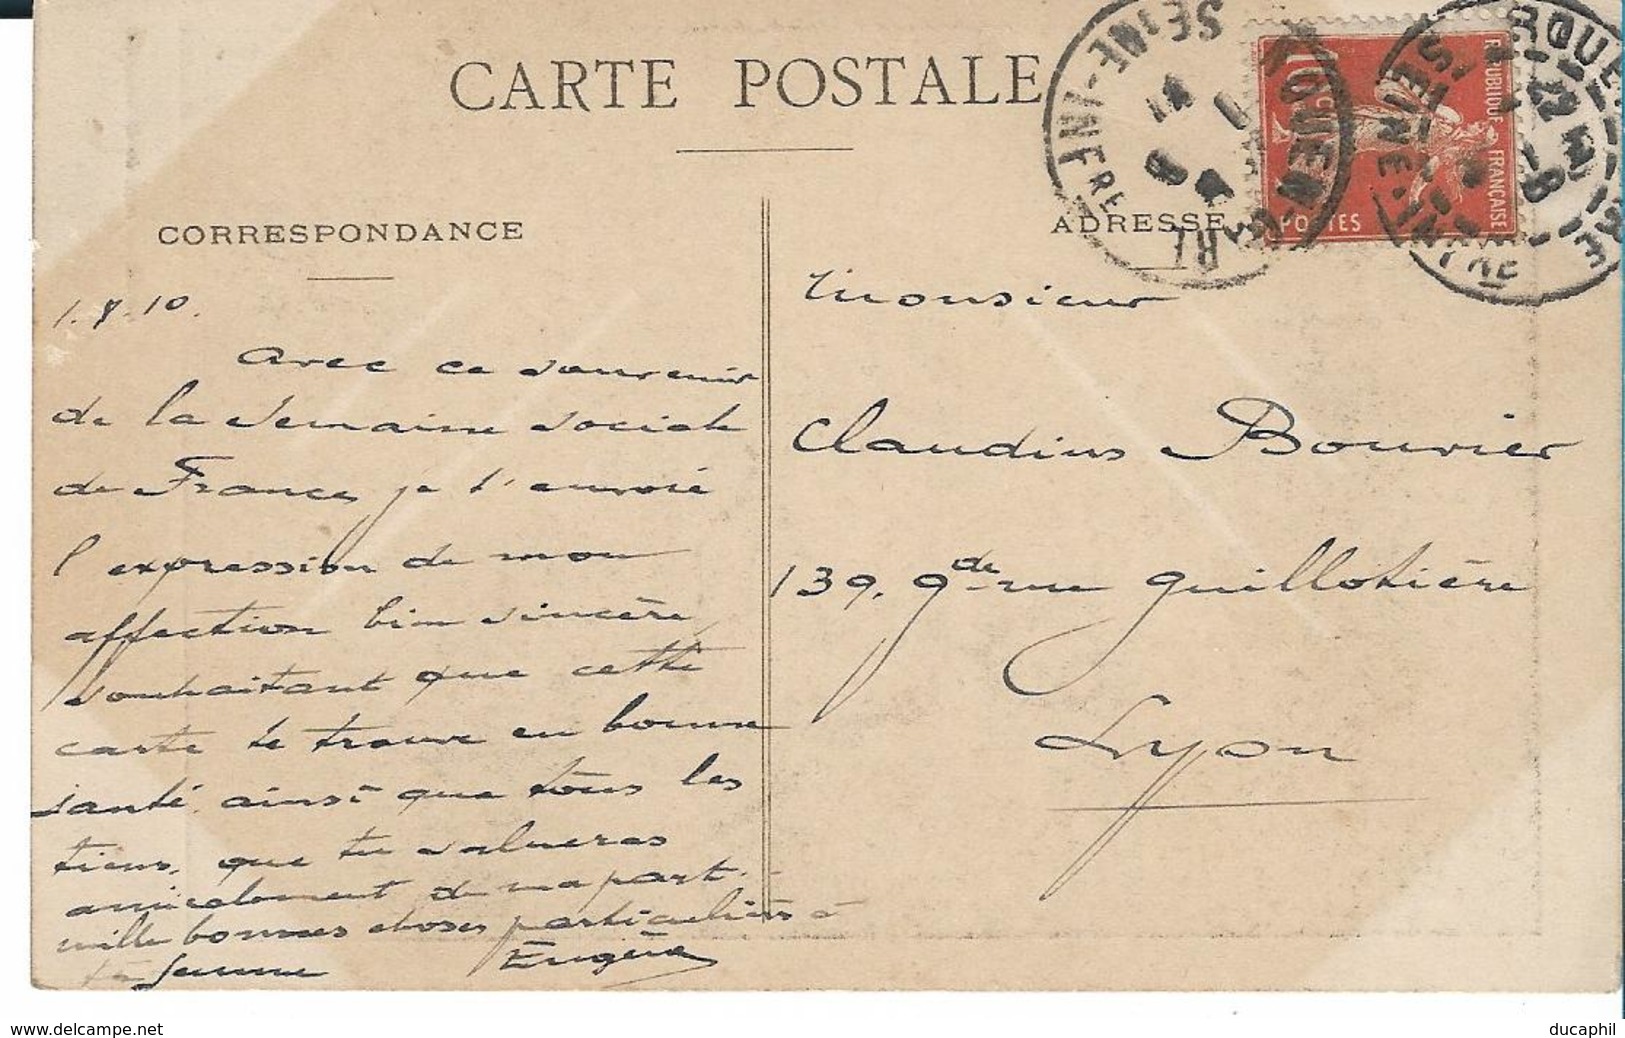 CARTE POSTALE
CORRESPONDANCE
ADRESSE
RÉPUBLIQUE FRANÇAISE
POSTES
10
ROUEN-GARE
SEINE-INFRE
SEINE-INFRE
1.8.10.
Avec ce souvenir
de la semaine sociale
de France, je t'envoie
l'expression de mon
affection bien sincère,
souhaitant que cette
carte te trouve en bonne
santé, ainsi que tous les
tiens, que tu salueras
amicalement de ma part.
mille bonnes choses particulières à
ta femme
Monsieur
Claudius Bouvier
139, gde rue Guillotière
Lyon
www.delcampe.net
ducaphil